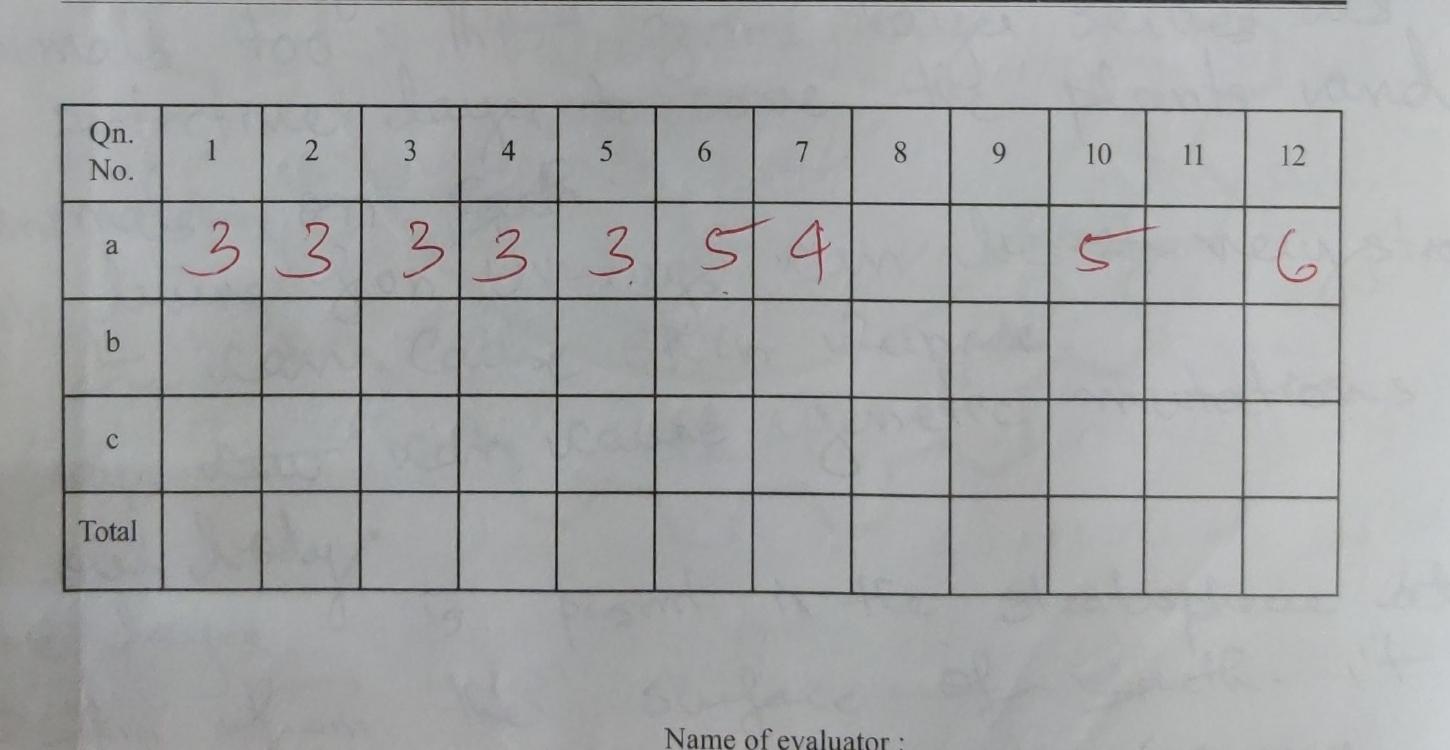 Qn. No. 1 2 3 4 5 6 7 8 9 10 11 12
a 3 3 3 3 3 5 4 5 6
b
c
Total
Name of evaluator :